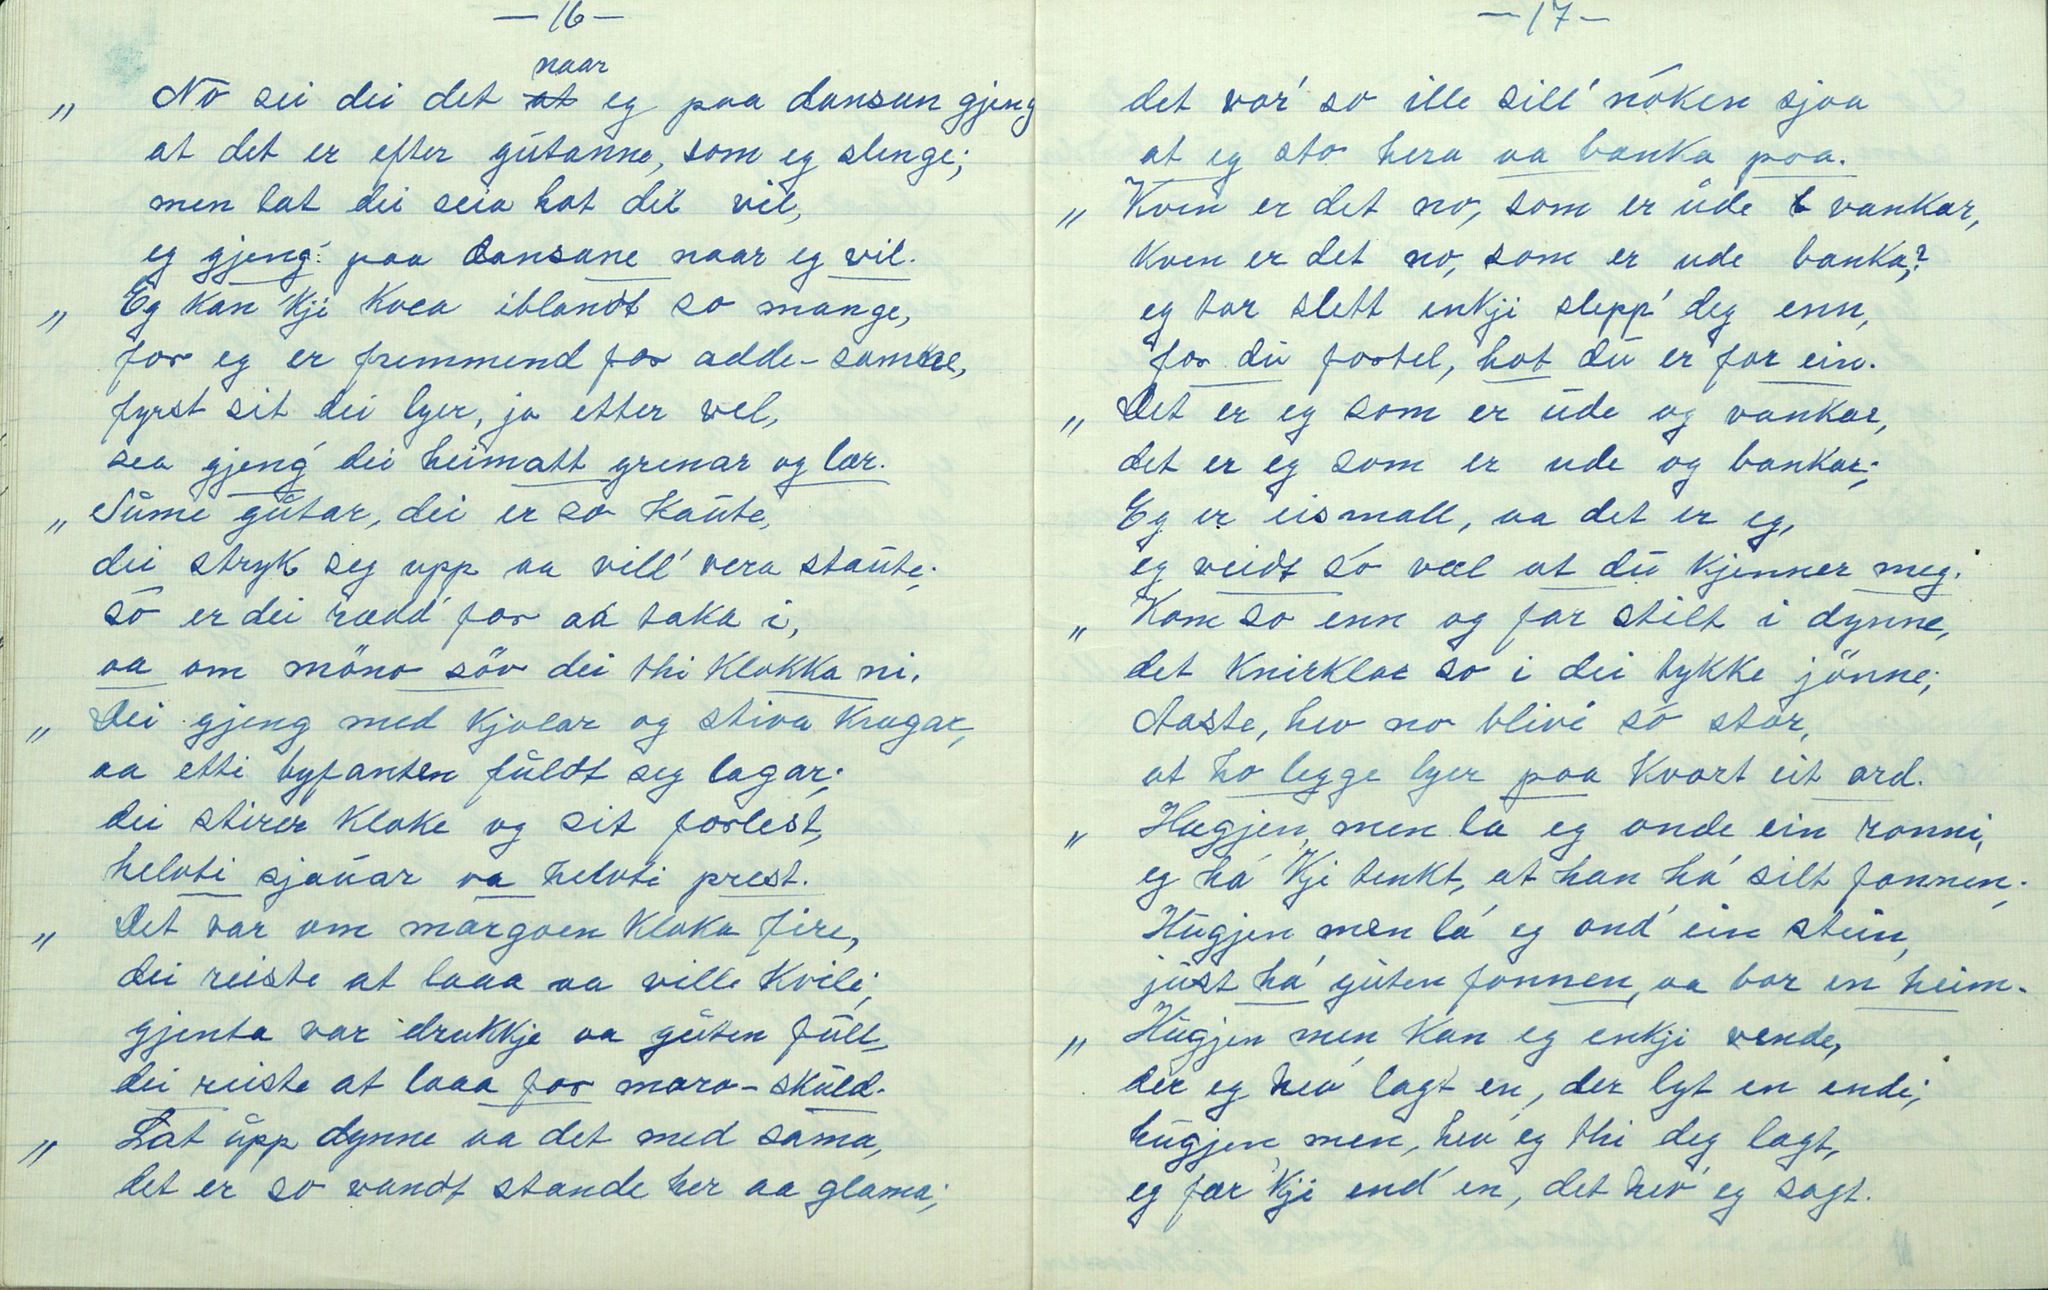 — 16 —
naar
„ No sei dei det at eg paa dansan gjeng
at det er efter gŭtanne, som eg slenge;
men lat dei seia hot dei vil,
eg gjeng' paa dansane naar eg vil.
„ Eg kan 'kji kvea iblandt so mange,
for eg er fremmend for adde-samme,
fyrst sit dei lyer, ja etter vel,
sea gjeng' dei heimatt grenar og lær.
„ Sŭme gŭtar, dei er so kaŭte,
dei stryk seg upp aa vill' vera staŭte;
so er dei rædd' for aa taka i,
aa om möno söv dei thi klokka ni.
„ Dei gjeng med kjolar og stiva kragar,
aa etti byfanten fŭldt seg lagar;
dei stirer kloke og sit forlest,
helvti sjaŭar aa helvti prest.
„ Det var om morgoen kloka fire,
dei reiste at laaa aa ville kvile;
gjenta var drukkje aa gŭten fŭll,
dei reiste at laaa for moro-skŭld.
„ Lat ŭpp dynne aa det med sama,
det er so vandt stande her aa glama;
— 17 —
det var' so ille sill' nóken sjaa
at eg sto hera aa banka paa.
„ Kven er det no, som er ŭde vankar,
kven er det no, som er ude banka,?
eg tar slett enkji slepp' deg enn,
for dŭ fortel, hot dŭ er for ein.
„ Det er eg som er ŭde og vankar,
det er eg som er ude og bankar;
Eg er eismall, aa det er eg,
eg veidt so væl at dŭ kjenner meg.
„ Kom so enn og far stilt i dynne,
det knirklar so i dei tykke jönne;
Aaste, hev no blivi so stor,
at ho legge lyer paa kvart eit ord.
„ Hŭgjen, men la eg onde ein ronni,
eg há 'kji tenkt, at han há silt fonnen;
Hŭgjen men lá eg ond' ein stein,
jŭst há gŭten fonnen, aa bar en heim.
„ Hŭgjen men kan eg enkji vende,
der eg hev' lagt en, der lyt en ende;
hŭgjen, men, hev' eg thi deg lagt,
eg fær 'kji end' en, det hev' eg sagt.